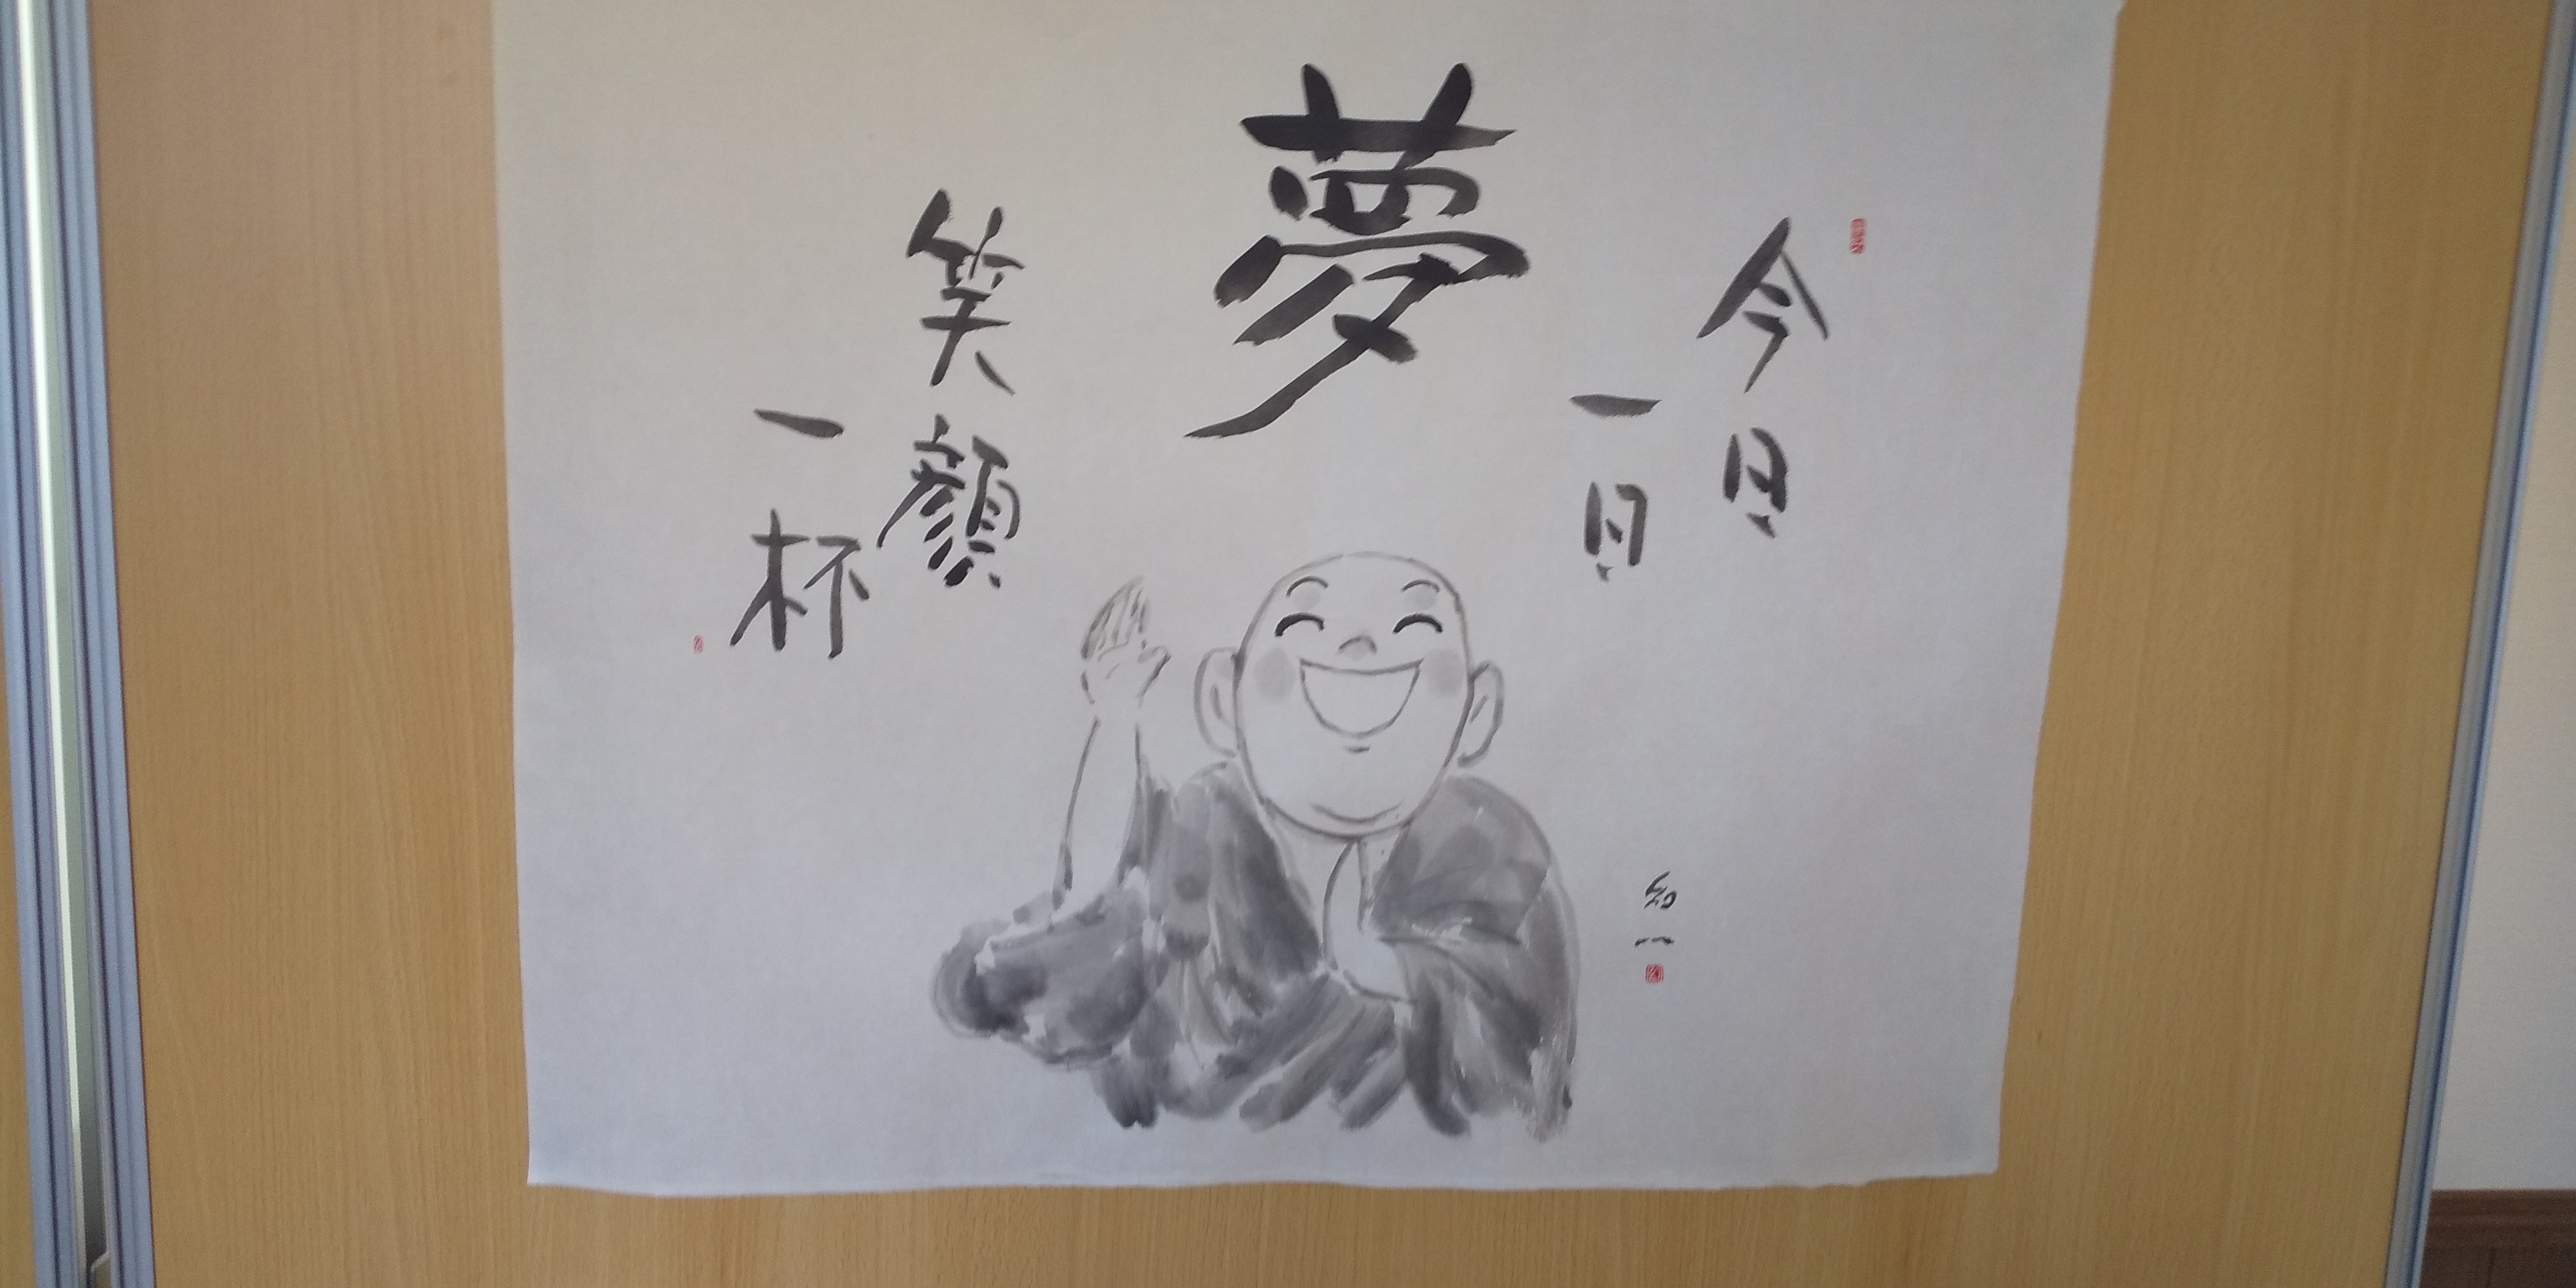 今日
一日
夢
笑顔
一杯